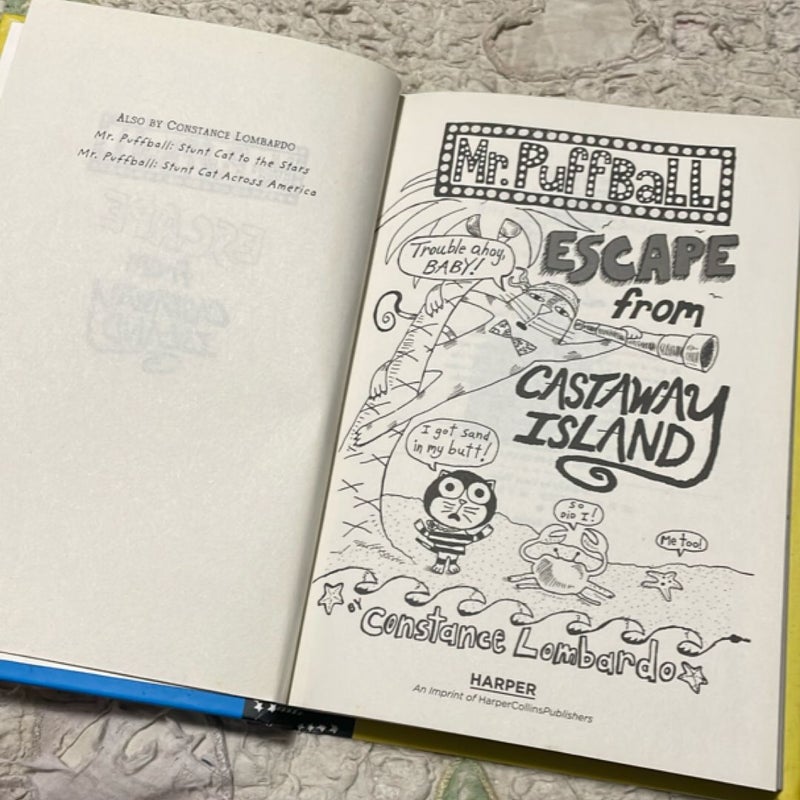 ALSO BY CONSTANCE LOMBARDO
Mr. Puffball: Stunt Cat to the Stars
Mr. Puffball: Stunt Cat Across America
Mr. PuffBaLL
ESCAPE
from
CASTAWAY
ISLAND
Trouble ahoy,
BABY!
I got sand
in my butt!
SO
DID I!
Me too!
BY Constance Lombardo
HARPER
An Imprint of HarperCollinsPublishers